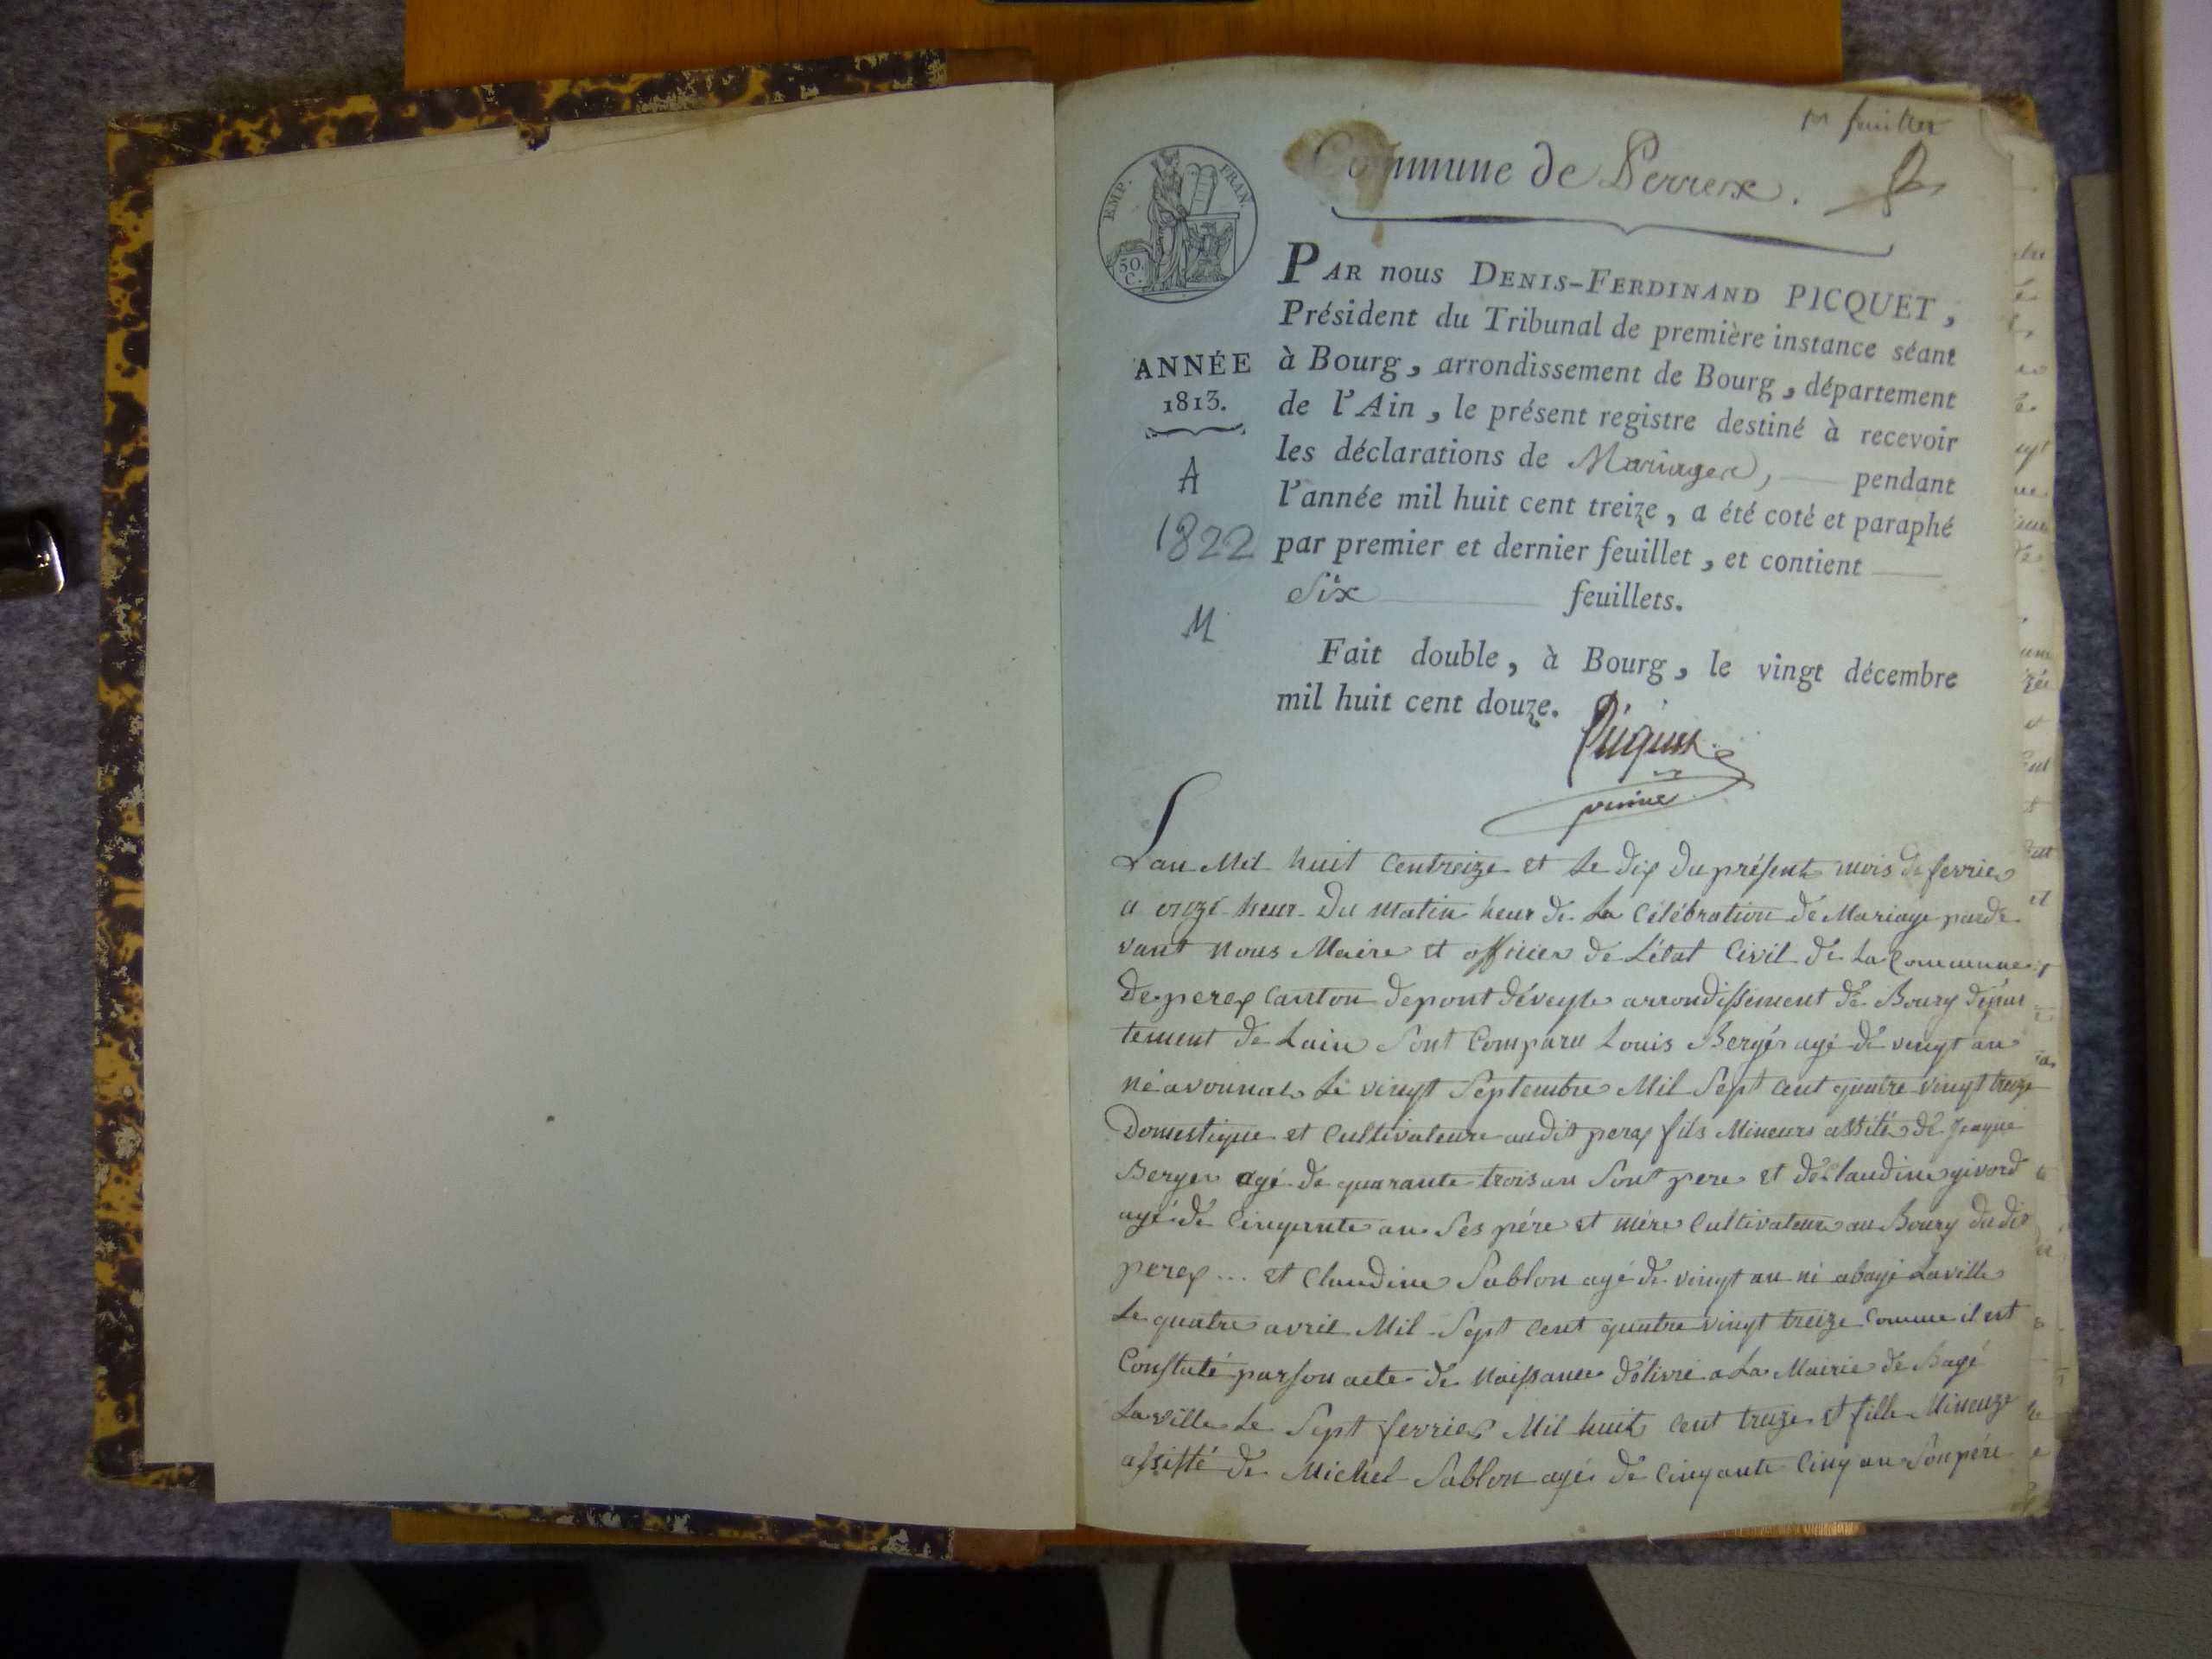 1er feuillet
Commune de Perrex.
EMP. FRAN.
50
C.
PAR nous DENIS-FERDINAND PICQUET,
Président du Tribunal de première instance séant
à Bourg, arrondissement de Bourg, département
de l'Ain, le présent registre destiné à recevoir
les déclarations de Mariages, pendant
l'année mil huit cent treize, a été coté et paraphé
par premier et dernier feuillet, et contient
Six feuillets.
ANNÉE
1813.
A
1822
M
Fait double, à Bourg, le vingt décembre
mil huit cent douze.
Picquet
Lan Mil huit Centreize et Le dix du présent mois de fevrier
a onze heur du matin heur de La Célébration de Mariage parde
vant nous Maire et officier de L'état Civil de La Commune
de perex Canton depont déveyle arrondissement de Bourg dépar
tement de Lain Sont Comparu Louis Berger agé de vingt an
né avonnas Le vingt Septembre Mil Sept Cent quatre vingt treize
Domestique et Cultivateure audit perex fils Mineurs assité de
Berger agé de quarante trois an Sont pere et de Claudine givord
agé de Cinquante an Ses pére et mére Cultivateur au Bourg dudit
perex ... et Claudine Sablon agé de vingt an né abagé Laville
Le quatre avril Mil Sept Cent quatre vingt treize Comme il est
Constaté par son acte de Naissance délivré a La Mairie de Bagé
Laville Le Sept fevrier Mil huit Cent treize et fille Mineuze
assisté de Michel Sablon agé de Cinquante Cinq an Son pére